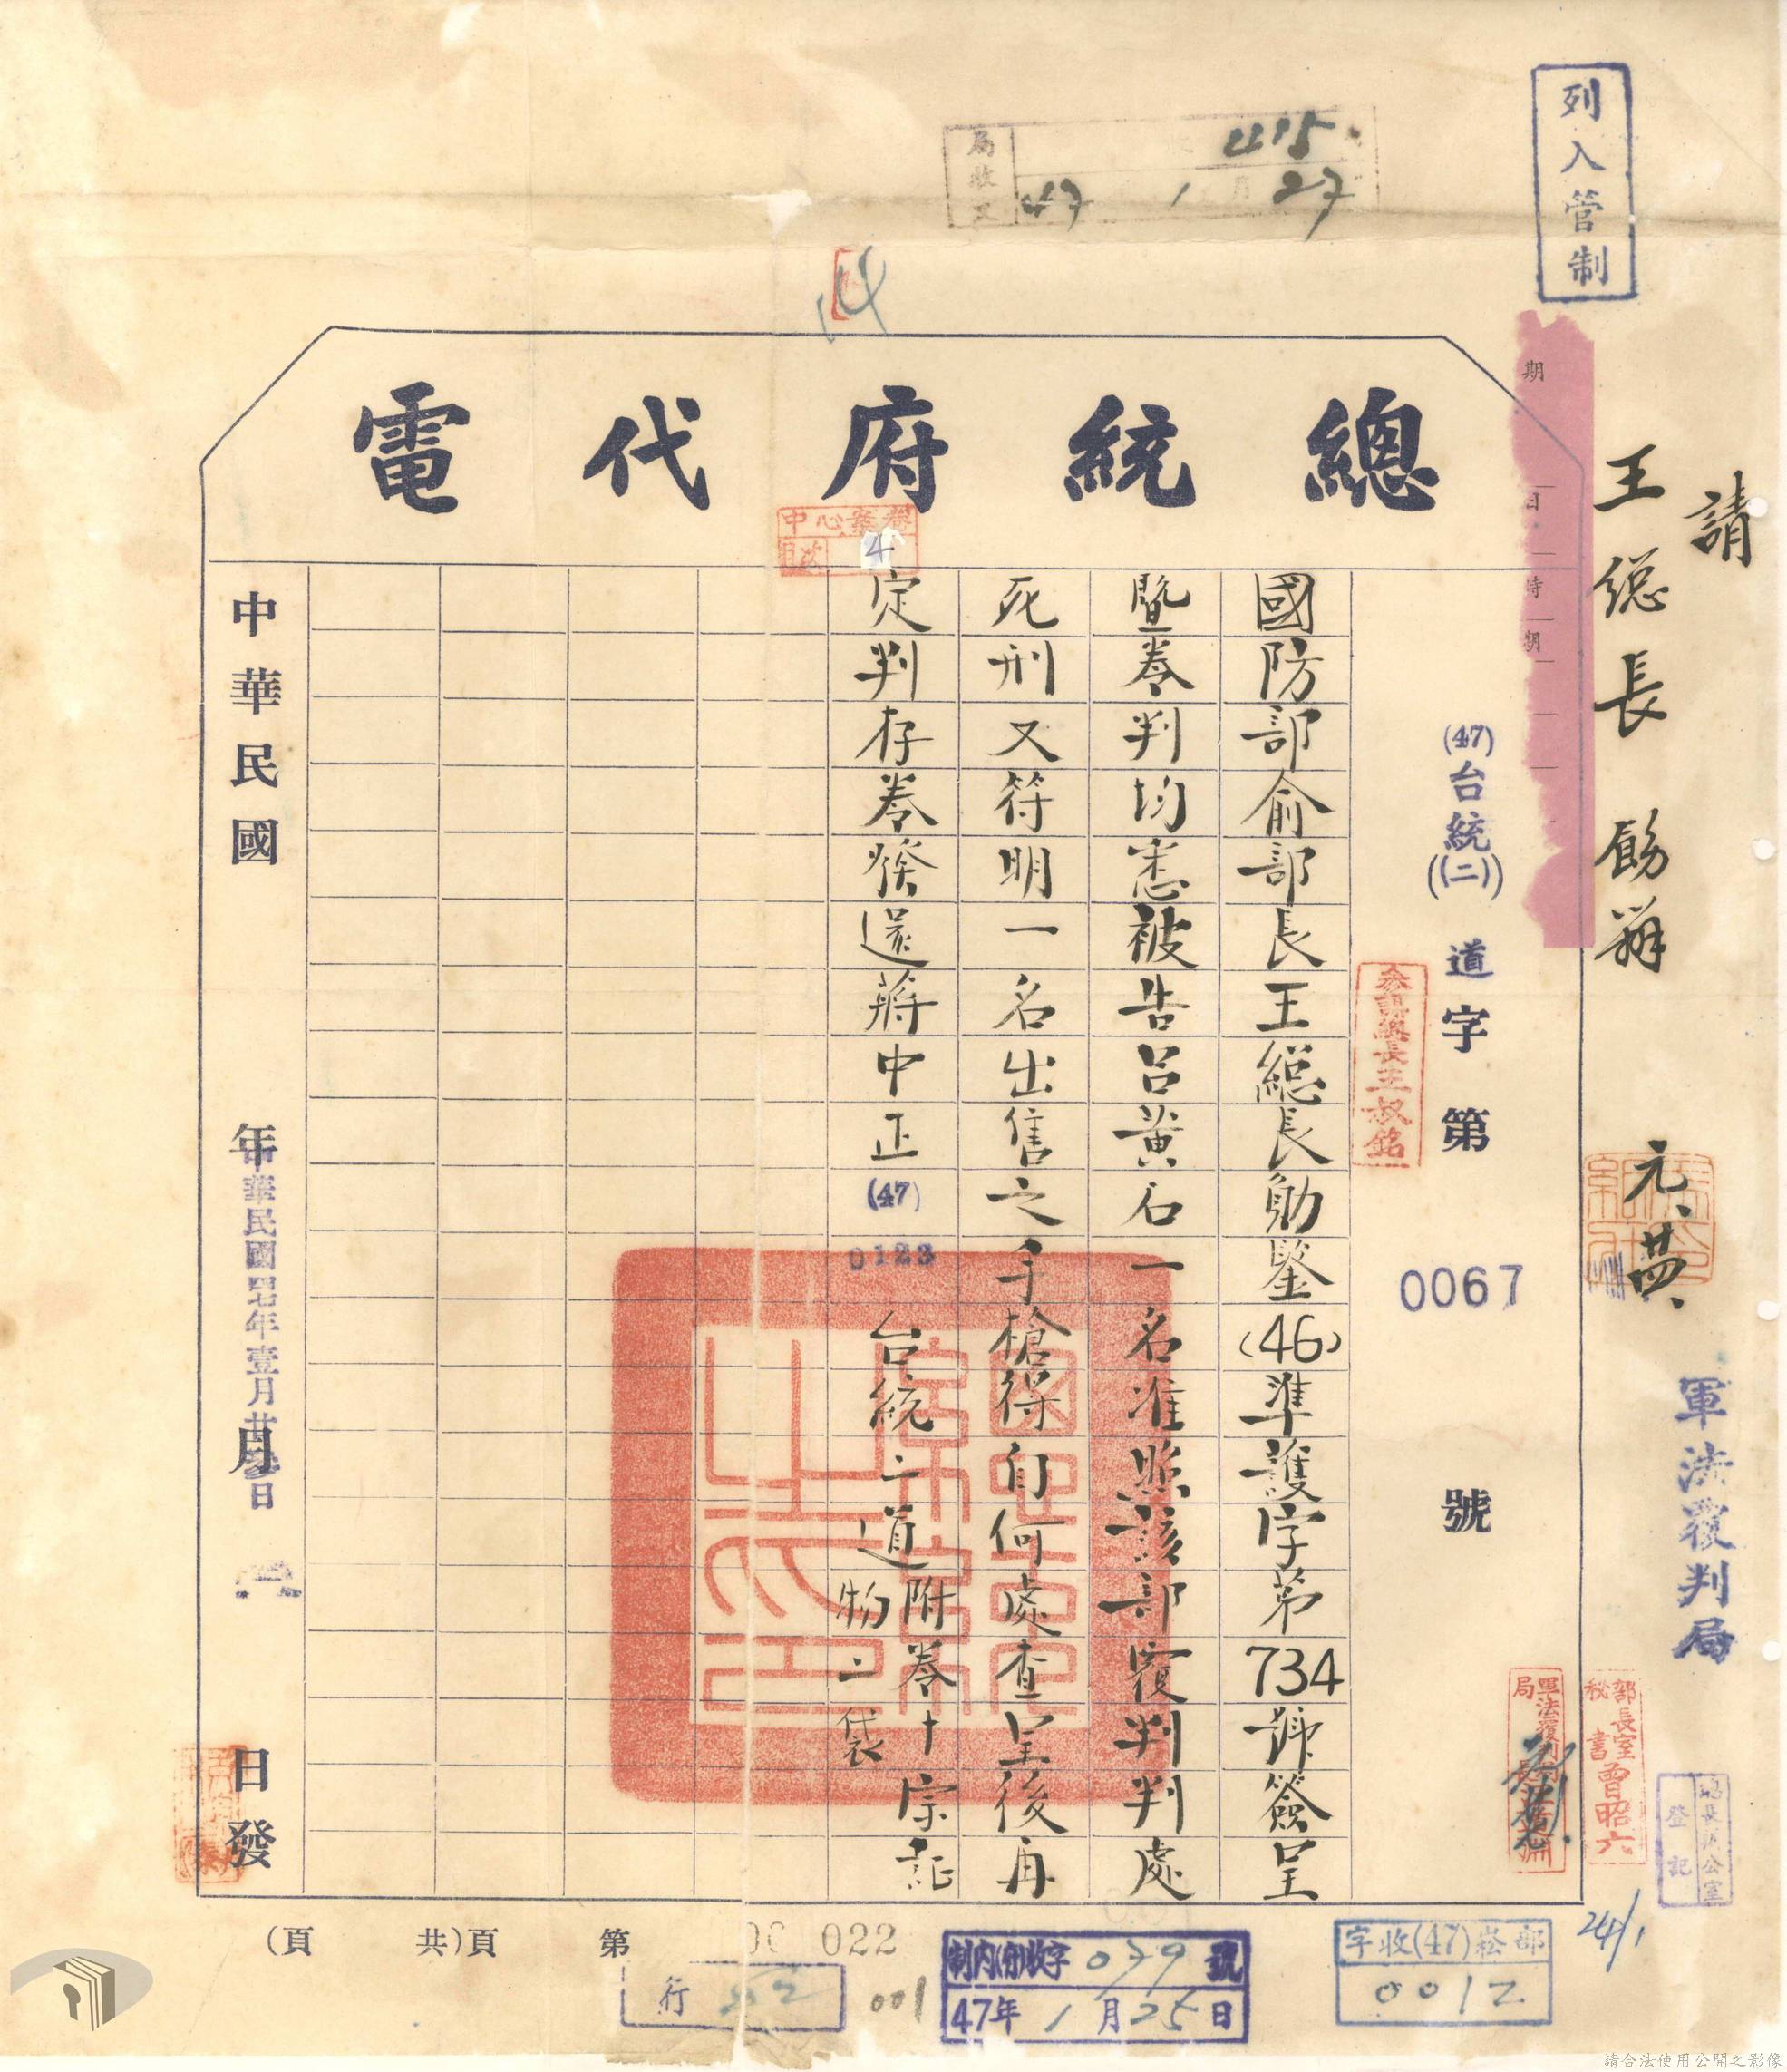 列入管制
局收文
415
47 1月27
14
總統府代電
中心案卷
4
請
王總長飭辦
元、廿四、
軍法覆判局
期
日
時
期
(47)台統(二)道字第0067號
參謀總長王叔銘
國防部俞部長王總長勛鑒(46)準護字第734號簽呈
暨卷判均悉被告呂黃石一名准照該部覆判判處
死刑又符明一名出售之手槍得自何處查呈後再
定判存卷發還蔣中正(47)0123台統二道附卷十宗證物二袋
中華民國 年 月 日發
中華民國四七年壹月廿 日
部長室秘書曾昭六
總長辦公室
登記
24/1
第 頁(共 頁)
022
001
行
制內(分)收字039號
47年1月25日
部崧(47)收字
0012
請合法使用公開之影像